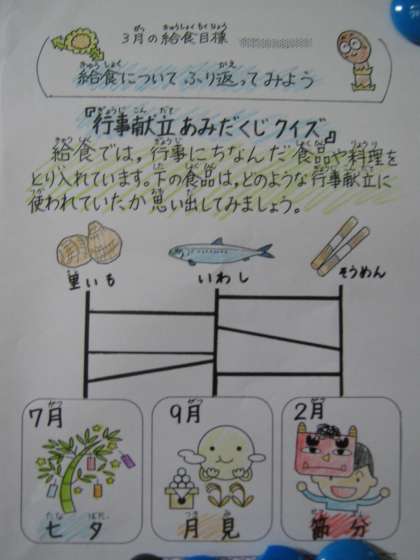 3月の給食目標
給食について ふり返ってみよう
『行事献立 あみだくじ クイズ』
給食では，行事にちなんだ食品や料理を
とり入れています。下の食品は，どのような行事献立に
使われていたか思い出してみましょう。
里いも いわし そうめん
7月 9月 2月
七夕 月見 節分